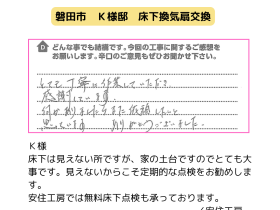 磐田市　Ｋ様邸　床下換気扇交換
D どんな事でも結構です。今回の工事に関するご感想を
お願いします。辛口のご意見もぜひお聞かせ下さい。
とても丁寧に作業していただき
感謝しています。
何か有りましたらまた依頼したいと
思っています　ありがとうございました。
Ｋ様
床下は見えない所ですが、家の土台ですのでとても大
事です。見えないからこそ定期的な点検をお勧めしま
す。
安住工房では無料床下点検も承っております。